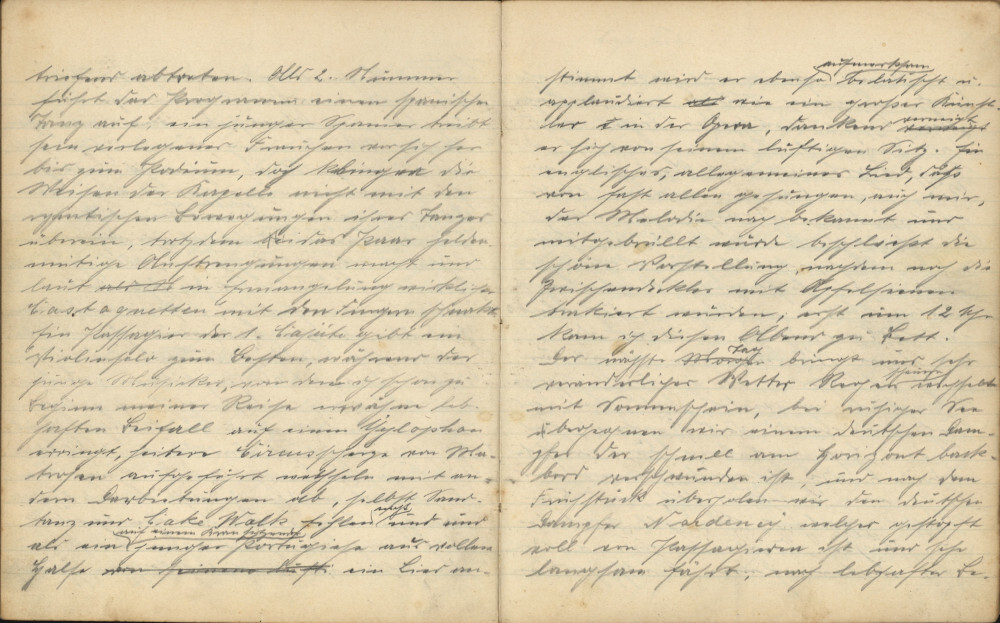 triefend abtreten. Als 2. Nummer
führt das Programm einen spanischen
Tanz auf, ein junger Spanier treibt
sein verlegenes Frauchen vor sich her
bis zum Podium, doch klingen die
Weisen der Kapelle nicht mit den
exotischen Bewegungen ihres Tanzes
überein, trotzdem das Paar helden-
mütige Anstrengungen macht und
laut als in Ermangelung wirklicher
Castagnetten mit den Fingern schnalzt.
Ein Passagier der 1. Cajüte gibt ein
Violinsolo zum Besten, während der
junge Musiker, von dem ich schon zu
Beginn meiner Reise erwähne leb-
haften Beifall auf einem Xylophon
erringt, heitere Scherze von Ma-
trosen aufgeführt wechseln mit an-
dern Darbietungen ab, selbst Sand-
tanz und Cake Walk fehlen nicht und
als ein auf einem Kran sitzender junger Portugiese aus vollem
Halse von seinem luft ein Lied an-
stimmt wird er ebenso aufmerksam belauscht u.
applaudiert als wie ein großer Künst-
ler in der Opera, dankend verneigt
er sich von seinem luftigen Sitz. Ein
englisches, allgemeines Lied, das
von fast allen gesungen, auch mir,
der Melodie nach bekannt und
mitgebrüllt wurde beschließt die
schöne Vorstellung, nachdem noch die
mit Apfelsinen
traktiert wurden, erst um 12 Uhr
kam ich diesen Abend zu Bett.
Der nächste Tag bringt uns sehr
veränderliches Wetter Regenschauer wechselt
mit Sonnenschein, bei ruhiger See
begegnen wir einem deutschen Dam-
pfer der schnell am Horizont back-
bord verschwunden ist, und nach dem
Frühstück überholen wir den deutschen
Dampfer Norderney welcher gestopft
voll von Passagieren ist und sehr
langsam fährt, nach lebhafter Be-